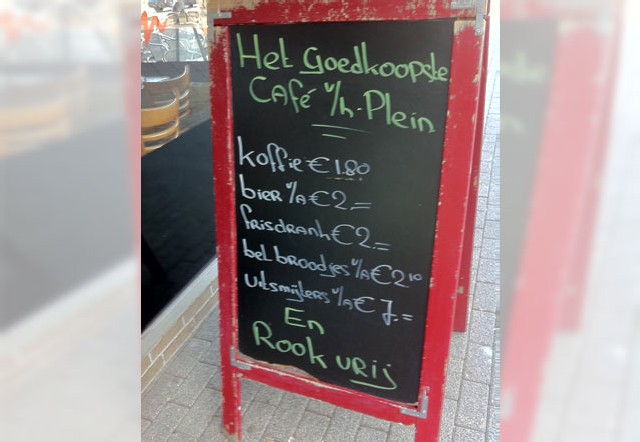 Het Goedkoopste
Café v/h. Plein
koffie € 1.80
bier v/a € 2.=
frisdrank € 2.=
bel.broodjes v/a € 2.10
uitsmijters v/a € 7.=
En
Rookvrij